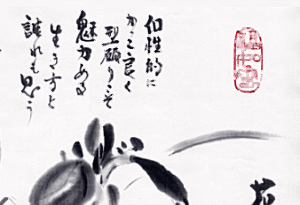 個性的に
かっこ良く
型破りこそ
魅力ある
生き方と
誰れも思う
花